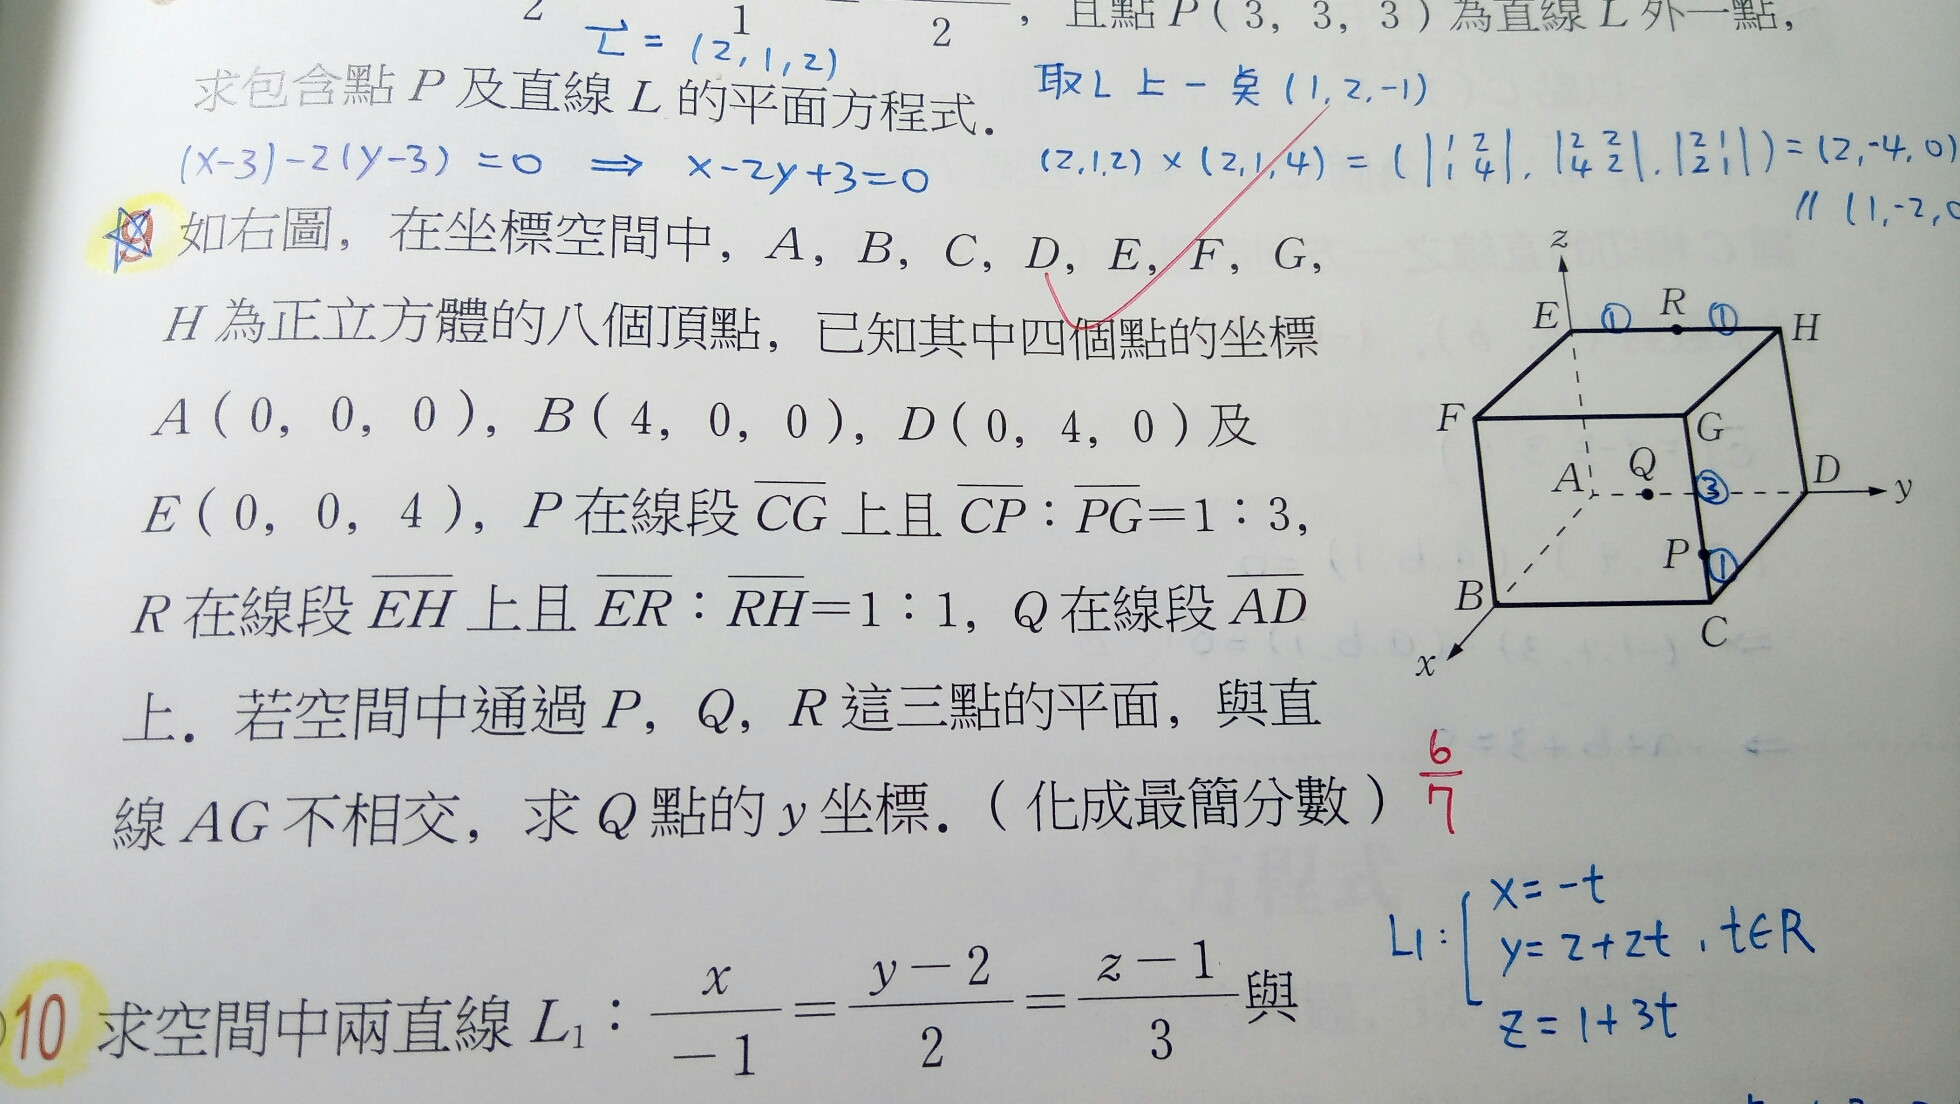 2 1 2 , 且點 P ( 3, 3, 3 ) 為直線 L 外一點,
L = (2,1,2)
求包含點 P 及直線 L 的平面方程式.
取L上一点 (1,2,-1)
(x-3)-2(y-3)=0 ⇒ x-2y+3=0
(2,1,2) × (2,1,4) = ( |1 2 1 4|, |2 2 4 2|, |2 1 2 1| ) = (2,-4,0)
// (1,-2,0
9 如右圖, 在坐標空間中, A, B, C, D, E, F, G,
H 為正立方體的八個頂點, 已知其中四個點的坐標
A ( 0, 0, 0 ), B ( 4, 0, 0 ), D ( 0, 4, 0 ) 及
E ( 0, 0, 4 ), P 在線段 CG 上且 CP : PG = 1 : 3,
R 在線段 EH 上且 ER : RH = 1 : 1, Q 在線段 AD
上. 若空間中通過 P, Q, R 這三點的平面, 與直
線 AG 不相交, 求 Q 點的 y 坐標. ( 化成最簡分數 )
6/7
z
E ① R ① H
F G
A Q ③ D y
P ①
B C
x
10 求空間中兩直線 L₁ : x/-1 = y-2/2 = z-1/3 與
L1: x=-t
y=2+2t , t∈R
z=1+3t